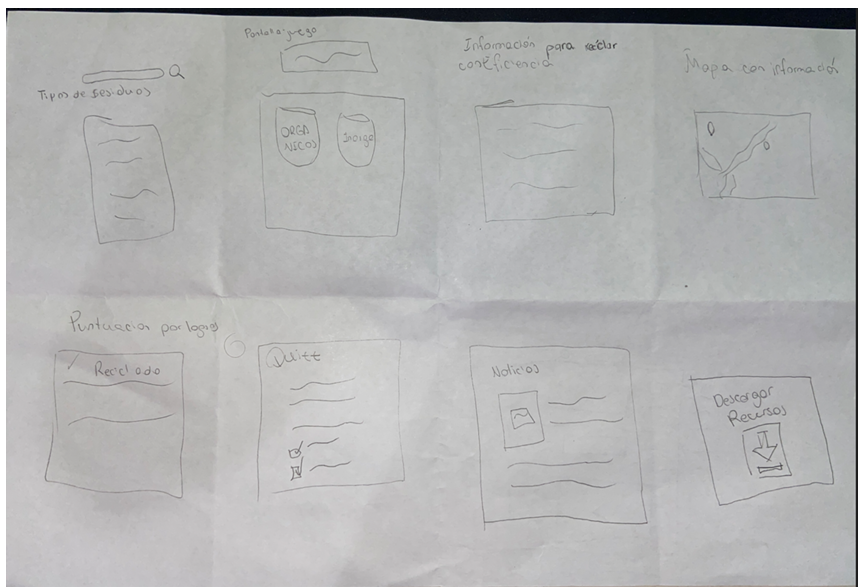 Tipos de Residuos
Pantalla juego
ORGA
NICOS
Información para reciclar
con eficiencia
Mapa con información
Puntuacion por logros
Reciclado
Quizz
Noticias
Descargar
Recursos